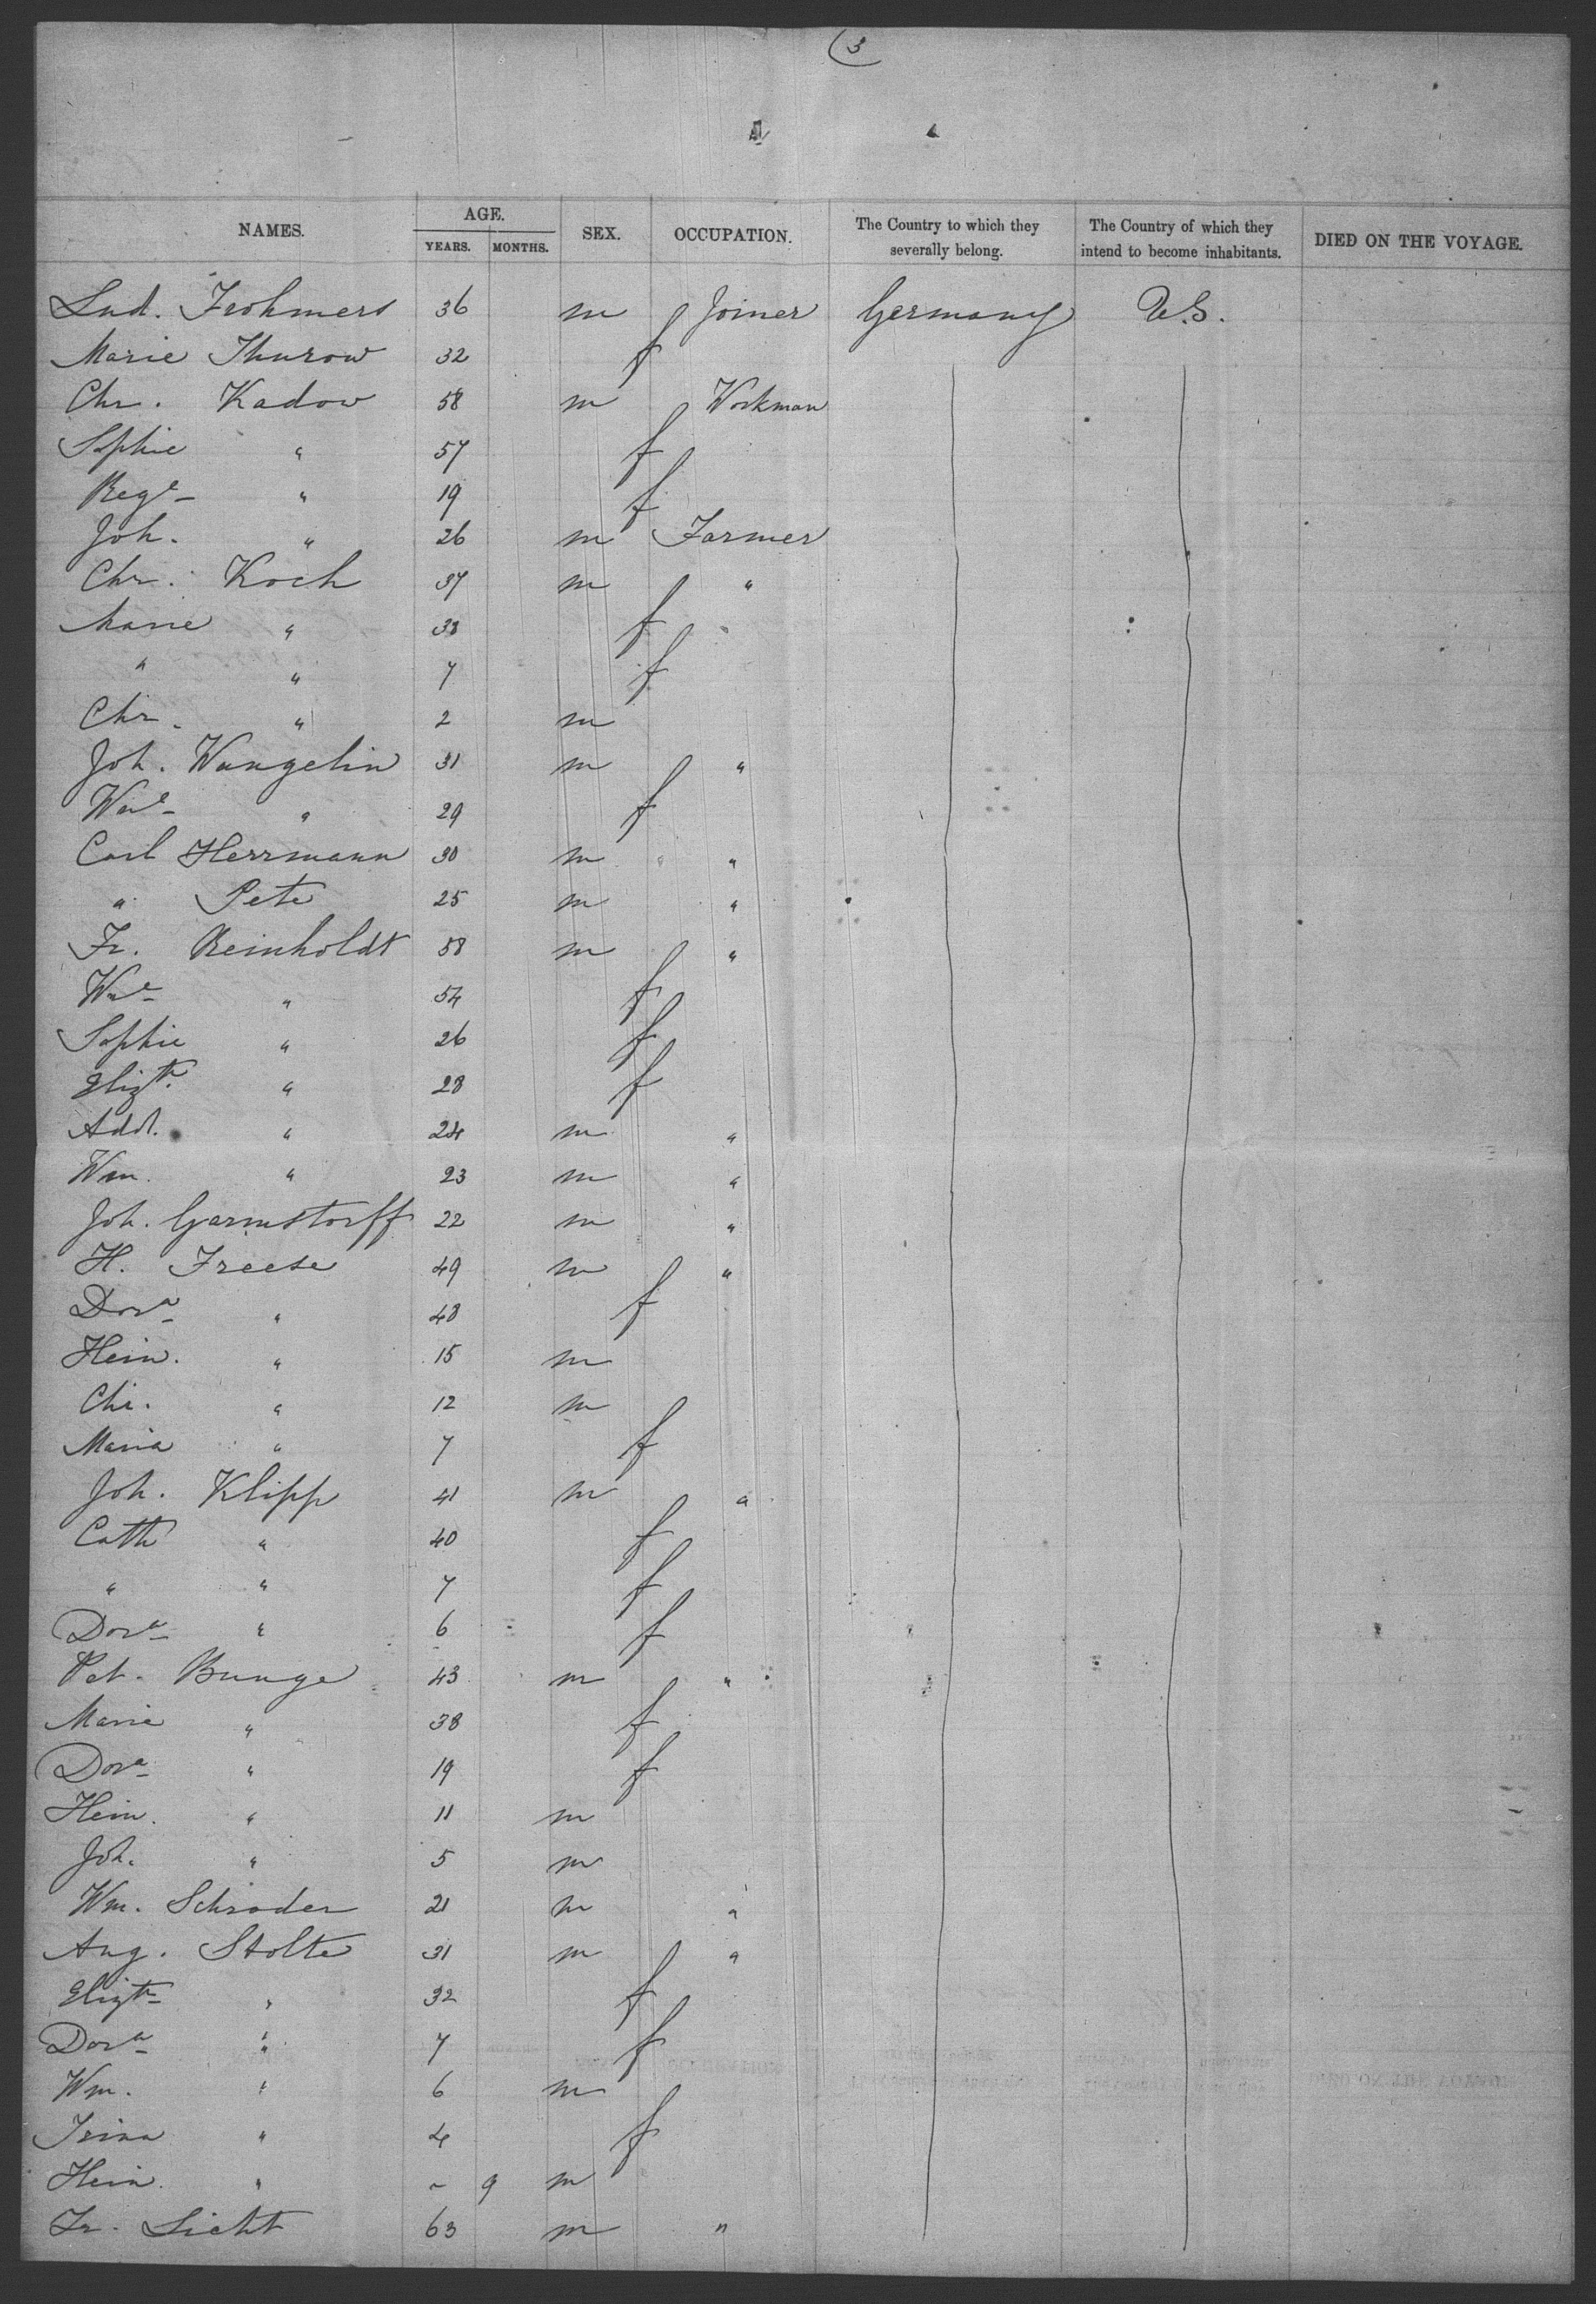 3
NAMES. AGE. YEARS. MONTHS. SEX. OCCUPATION. The Country to which they severally belong. The Country of which they intend to become inhabitants. DIED ON THE VOYAGE.
Lud. Frohmers 36 m Joiner Germany U.S.
Marie Thurow 32 f
Chr. Kadow 58 m Workman
Sophie " 57 f
Rege " 19 f
Joh. " 26 m Farmer
Chr. Koch 37 m "
Marie " 38 f
" " 7 f
Chr. " 2 m
Joh. Wangelin 31 m "
" 29 f
Carl Herrmann 30 m "
" Pete 25 m "
Fr. Reinholdt 58 m "
" 54 f
Sophie " 26 f
Elizth. " 28 f
" 24 m "
Wm. " 23 m "
Joh. Garmstorff 22 m "
H. Freese 49 m "
Dora " 48 f
Hein. " 15 m
Chr. " 12 m
Maria " 7 f
Joh. Klipp 41 m "
Cath " 40 f
" " 7 f
Dora " 6 f
Pet. Bunge 43 m "
Marie " 38 f
Dora " 19 f
Hein. " 11 m
Joh. " 5 m
Wm. Schroder 21 m "
Aug. Stolte 31 m "
Elizth " 32 f
Dora " 7 f
Wm. " 6 m
Trina " 4 f
Hein. " - 9 m
Fr. Licht 63 m "